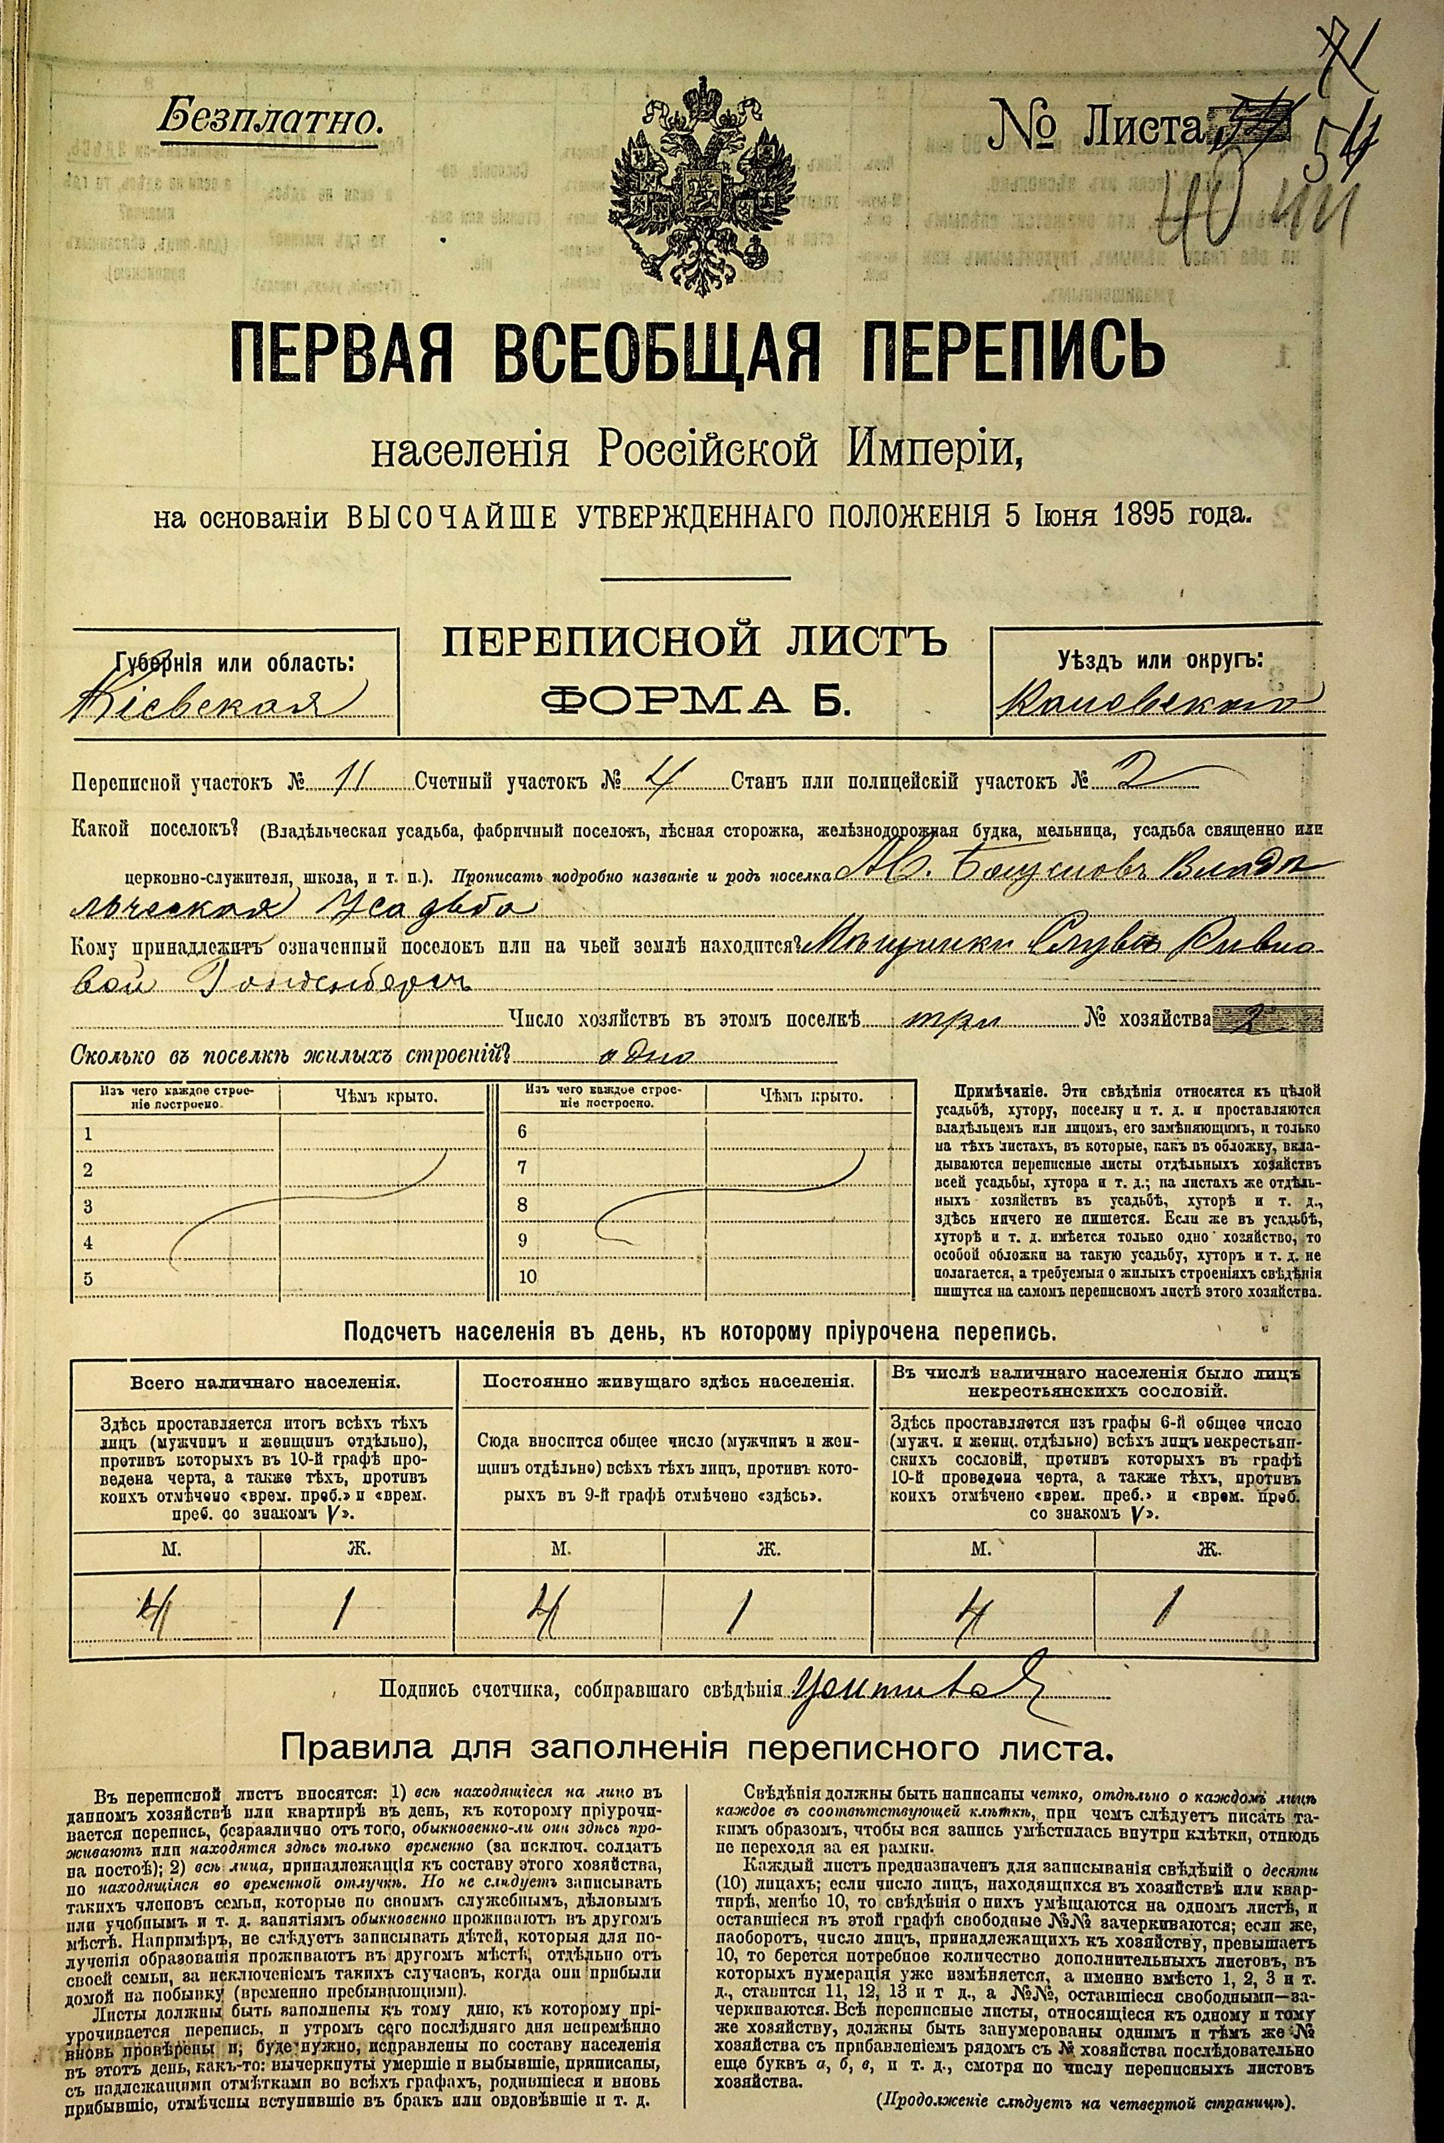 Безплатно.
№ Листа 54
40
ПЕРВАЯ ВСЕОБЩАЯ ПЕРЕПИСЬ
населенія Россійской Имперіи,
на основаніи ВЫСОЧАЙШЕ УТВЕРЖДЕННАГО ПОЛОЖЕНІЯ 5 Іюня 1895 года.
ПЕРЕПИСНОЙ ЛИСТЪ
ФОРМА Б.
Губернія или область:
Кіевская
Уѣздъ или округъ:
Каневскаго
Переписной участокъ № 11 Счетный участокъ № 4 Станъ или полицейскій участокъ № 2
Какой поселокъ? (Владѣльческая усадьба, фабричный поселокъ, лѣсная сторожка, желѣзнодорожная будка, мельница, усадьба священно или
церковно-служителя, школа, и т. п.). Прописать подробно названіе и родъ поселка
льческая Усадьба
Кому принадлежитъ означенный поселокъ или на чьей землѣ находится? Мѣщанки
вой Гольденбергъ
Число хозяйствъ въ этомъ поселкѣ три № хозяйства 2
Сколько въ поселкѣ жилыхъ строеній? одно
Изъ чего каждое строе-
ніе построено.
Чѣмъ крыто.
Изъ чего каждое строе-
ніе построено.
Чѣмъ крыто.
1
2
3
4
5
6
7
8
9
10
Примѣчаніе. Эти свѣдѣнія относятся къ цѣлой
усадьбѣ, хутору, поселку и т. д. и проставляются
владѣльцемъ или лицомъ, его замѣняющимъ, и только
на тѣхъ листахъ, въ которые, какъ въ обложку, вкла-
дываются переписные листы отдѣльныхъ хозяйствъ
всей усадьбы, хутора и т. д.; на листахъ же отдѣль-
ныхъ хозяйствъ въ усадьбѣ, хуторѣ и т. д.,
здѣсь ничего не пишется. Если же въ усадьбѣ,
хуторѣ и т. д. имѣется только одно хозяйство, то
особой обложки на такую усадьбу, хуторъ и т. д. не
полагается, а требуемыя о жилыхъ строеніяхъ свѣдѣнія
пишутся на самомъ переписномъ листѣ этого хозяйства.
Подсчетъ населенія въ день, къ которому пріурочена перепись.
Всего наличнаго населенія.
Здѣсь проставляется итогъ всѣхъ тѣхъ
лицъ (мужчинъ и женщинъ отдѣльно),
противъ которыхъ въ 10-й графѣ про-
ведена черта, а также тѣхъ, противъ
коихъ отмѣчено «врем. преб.» и «врем.
преб. со знакомъ V».
Постоянно живущаго здѣсь населенія.
Сюда вносится общее число (мужчинъ и жен-
щинъ отдѣльно) всѣхъ тѣхъ лицъ, противъ кото-
рыхъ въ 9-й графѣ отмѣчено «здѣсь».
Въ числѣ наличнаго населенія было лицъ
некрестьянскихъ сословій.
Здѣсь проставляется изъ графы 6-й общее число
(мужч. и женщ. отдѣльно) всѣхъ лицъ некрестьян-
скихъ сословій, противъ которыхъ въ графѣ
10-й проведена черта, а также тѣхъ, противъ
коихъ отмѣчено «врем. преб.» и «врем. преб.
со знакомъ V».
М. Ж. М. Ж. М. Ж.
4 1 4 1 4 1
Подпись счетчика, собиравшаго свѣдѣнія
Правила для заполненія переписного листа.
Въ переписной листъ вносятся: 1) всѣ находящіеся на лицо въ
данномъ хозяйствѣ или квартирѣ въ день, къ которому пріурочи-
вается перепись, безразлично отъ того, обыкновенно-ли они здѣсь про-
живаютъ или находятся здѣсь только временно (за исключ. солдатъ
на постоѣ); 2) всѣ лица, принадлежащія къ составу этого хозяйства,
но находящіяся во временной отлучкѣ. Но не слѣдуетъ записывать
такихъ членовъ семьи, которые по своимъ служебнымъ, дѣловымъ
или учебнымъ и т. д. занятіямъ обыкновенно проживаютъ въ другомъ
мѣстѣ. Напримѣръ, не слѣдуетъ записывать дѣтей, которыя для по-
лученія образованія проживаютъ въ другомъ мѣстѣ, отдѣльно отъ
своей семьи, за исключеніемъ такихъ случаевъ, когда они прибыли
домой на побывку (временно пребывающими).
Листы должны быть заполнены къ тому дню, къ которому прі-
урочивается перепись, и утромъ сего послѣдняго дня непремѣнно
вновь провѣрены и, буде нужно, исправлены по составу населенія
въ этотъ день, какъ-то: вычеркнуты умершіе и выбывшіе, приписаны,
съ надлежащими отмѣтками во всѣхъ графахъ, родившіеся и вновь
прибывшіе, отмѣчены вступившіе въ бракъ или овдовѣвшіе и т. д.
Свѣдѣнія должны быть написаны четко, отдѣльно о каждомъ лицѣ
каждое въ соотвѣтствующей клѣткѣ, при чемъ слѣдуетъ писать та-
кимъ образомъ, чтобы вся запись умѣстилась внутри клѣтки, отнюдь
не переходя за ея рамки.
Каждый листъ предназначенъ для записыванія свѣдѣній о десяти
(10) лицахъ; если число лицъ, находящихся въ хозяйствѣ или квар-
тирѣ, менѣе 10, то свѣдѣнія о нихъ умѣщаются на одномъ листѣ, и
оставшіеся въ этой графѣ свободные №№ зачеркиваются; если же,
наоборотъ, число лицъ, принадлежащихъ къ хозяйству, превышаетъ
10, то берется потребное количество дополнительныхъ листовъ, въ
которыхъ нумерація уже измѣняется, а именно вмѣсто 1, 2, 3 и т.
д., ставится 11, 12, 13 и т. д., а №№, оставшіеся свободными—за-
черкиваются. Всѣ переписные листы, относящіеся къ одному и тому
же хозяйству, должны быть занумерованы однимъ и тѣмъ же №
хозяйства съ прибавленіемъ рядомъ съ № хозяйства послѣдовательно
еще буквъ а, б, в, и т. д., смотря по числу переписныхъ листовъ
хозяйства.
(Продолженіе слѣдуетъ на четвертой страницѣ).